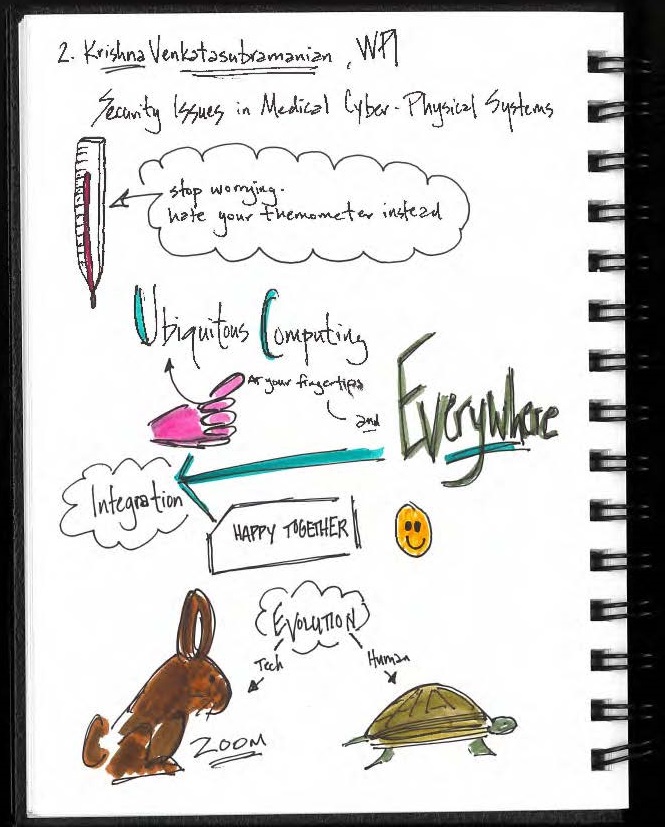 2. Krishna Venkatasubramanian, WPI
Security Issues in Medical Cyber-Physical Systems
stop worrying.
hate your themometer instead
Ubiquitous Computing
At your fingertips
and
Everywhere
Integration
HAPPY TOGETHER
EVOLUTION
Tech
Human
ZOOM